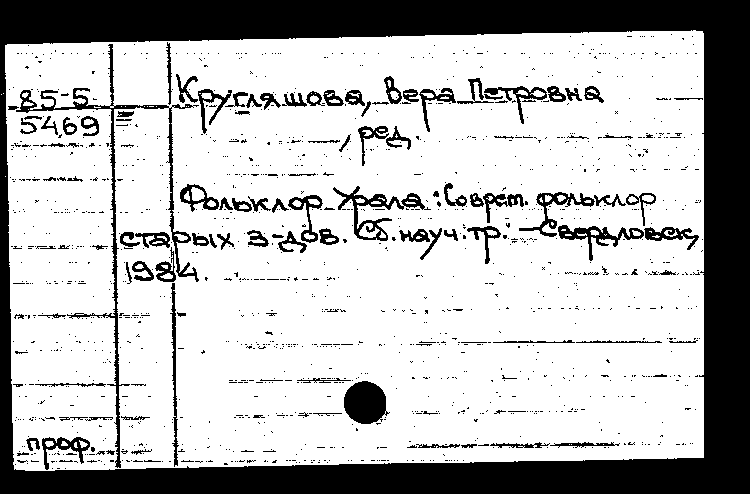 85-5
5469
Кругляшова, Вера Петровна
, ред.
Фольклор Урала : Соврем. фольклор
старых з-дов. Сб. науч. тр. - Свердловск,
1984.
проф.